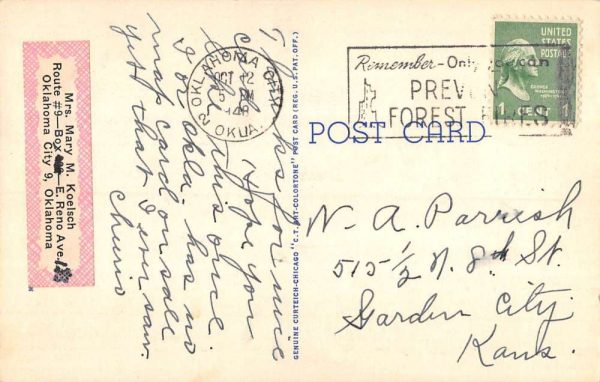 Mrs. Mary M. Koelsch
Route #9-Box E. Reno Ave.
Oklahoma City 9, Oklahoma
for nice
Hope you
this once.
Okla. has no
map card on sale
yet that I ever saw.
Cheerio
GENUINE CURTEICH-CHICAGO "C.T. ART-COLORTONE" POST CARD (REG. U.S. PAT. OFF.)
OKLAHOMA CITY
OCT 12
5 PM
OKLA.
2
Remember-Only you can
PREVENT
FOREST FIRES
UNITED
STATES
POSTAGE
GEORGE
WASHINGTON
1 CENT 1
POST CARD
N. A. Parrish
515 1/2 N. 8th St.
Garden City,
Kans.